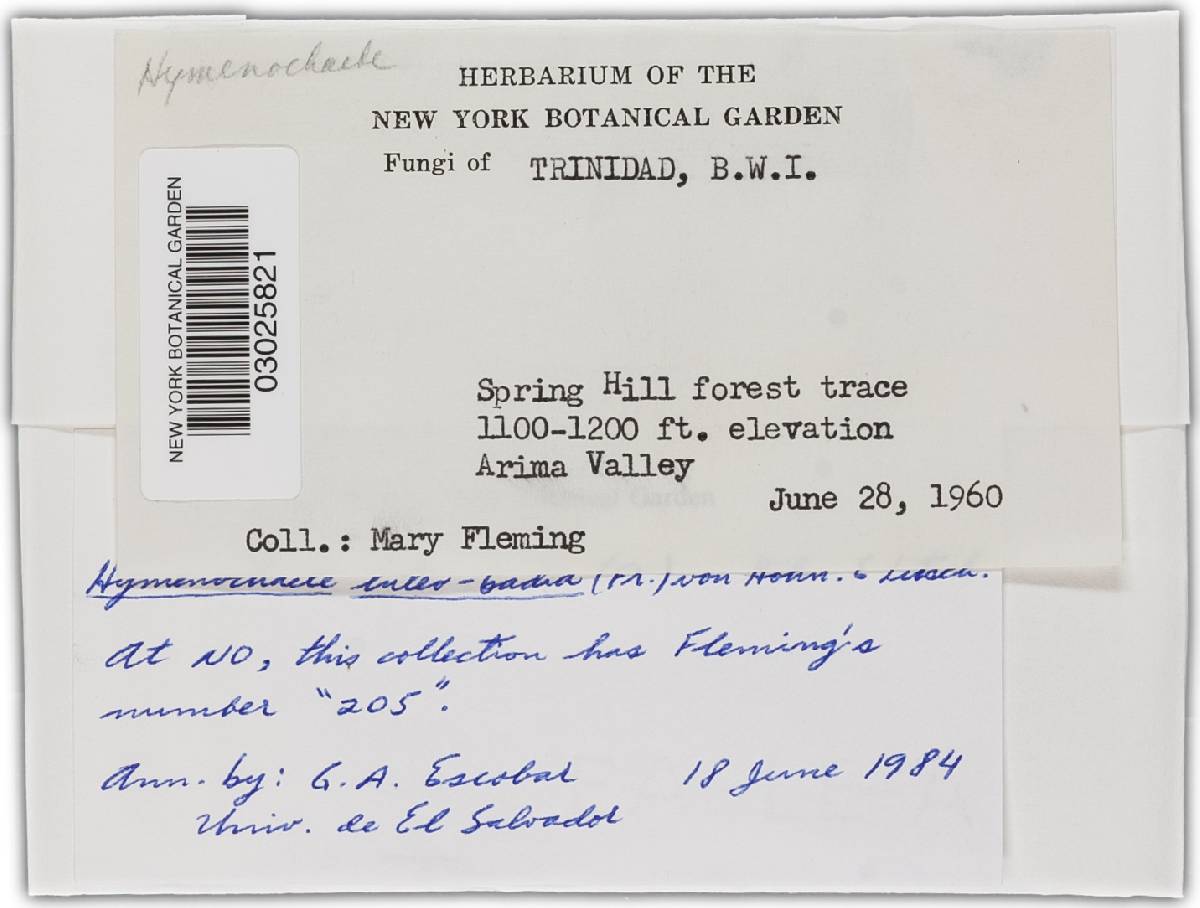 Hymenochaete
HERBARIUM OF THE
NEW YORK BOTANICAL GARDEN
Fungi of TRINIDAD, B.W.I.
NEW YORK BOTANICAL GARDEN
03025821
Spring Hill forest trace
1100-1200 ft. elevation
Arima Valley
June 28, 1960
Coll.: Mary Fleming
Hymenochaete luteo-badia (Fr.) von Höhn. & Litsch.
At NO, this collection has Fleming's
number "205".
Ann. by: G. A. Escobar 18 June 1984
Univ. de El Salvador